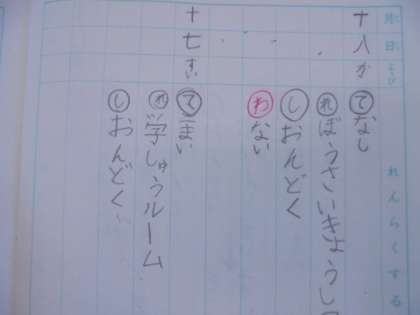 れんらくする
十八か
㋢なし
㋹ぼうさいきょうし
㋛おんどく
㋻ない
十七すい
㋢一まい
㋹学しゅうルーム
㋛おんどく